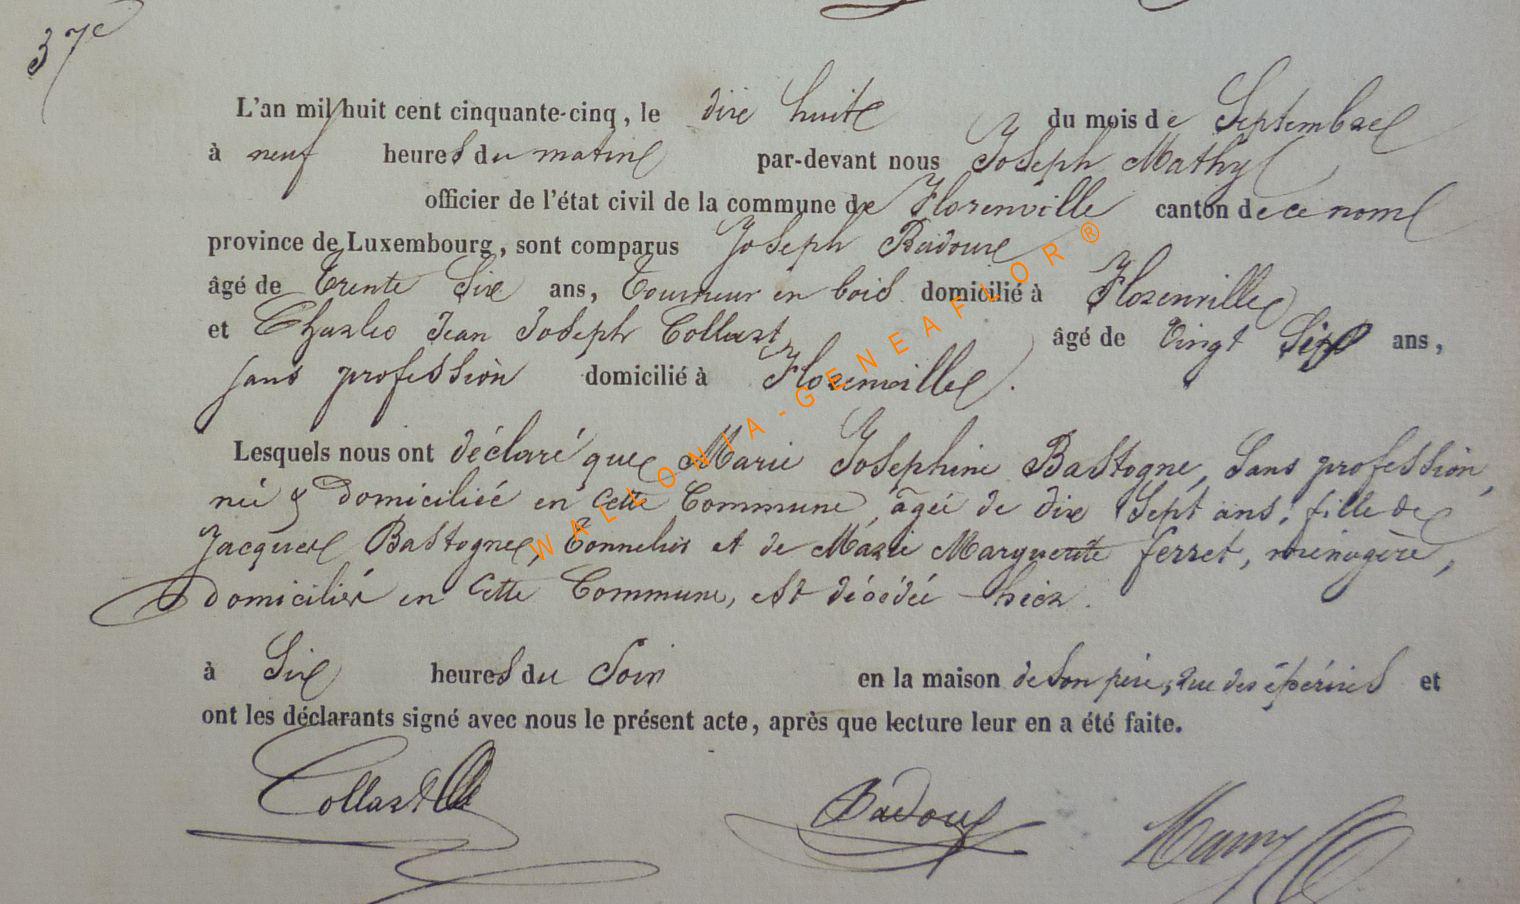 37e
L'an mil huit cent cinquante-cinq, le dix huite du mois de Septembre
à neuf heures du matin par-devant nous Joseph Mathy
officier de l'état civil de la commune de Florenville canton de ce nom
province de Luxembourg, sont comparus Joseph Badoux
âgé de Trente Six ans, Tourneur en bois domicilié à Florenville
et Charles Jean Joseph Collart âgé de Vingt Sept ans,
sans profession domicilié à Florenville.
Lesquels nous ont déclaré que Marie Joséphine Bastogne, Sans profession,
née & domiciliée en Cette Commune, agée de dix Sept ans, fille de
Jacques Bastogne, Tonnelier et de Marie Marguerite ferret, ménagère,
domiciliés en Cette Commune, est décédée hier.
à Six heures du Soir en la maison de Son père, rue des et
ont les déclarants signé avec nous le présent acte, après que lecture leur en a été faite.
Collart Badoux
WALLONIA-GENEAFLOR®